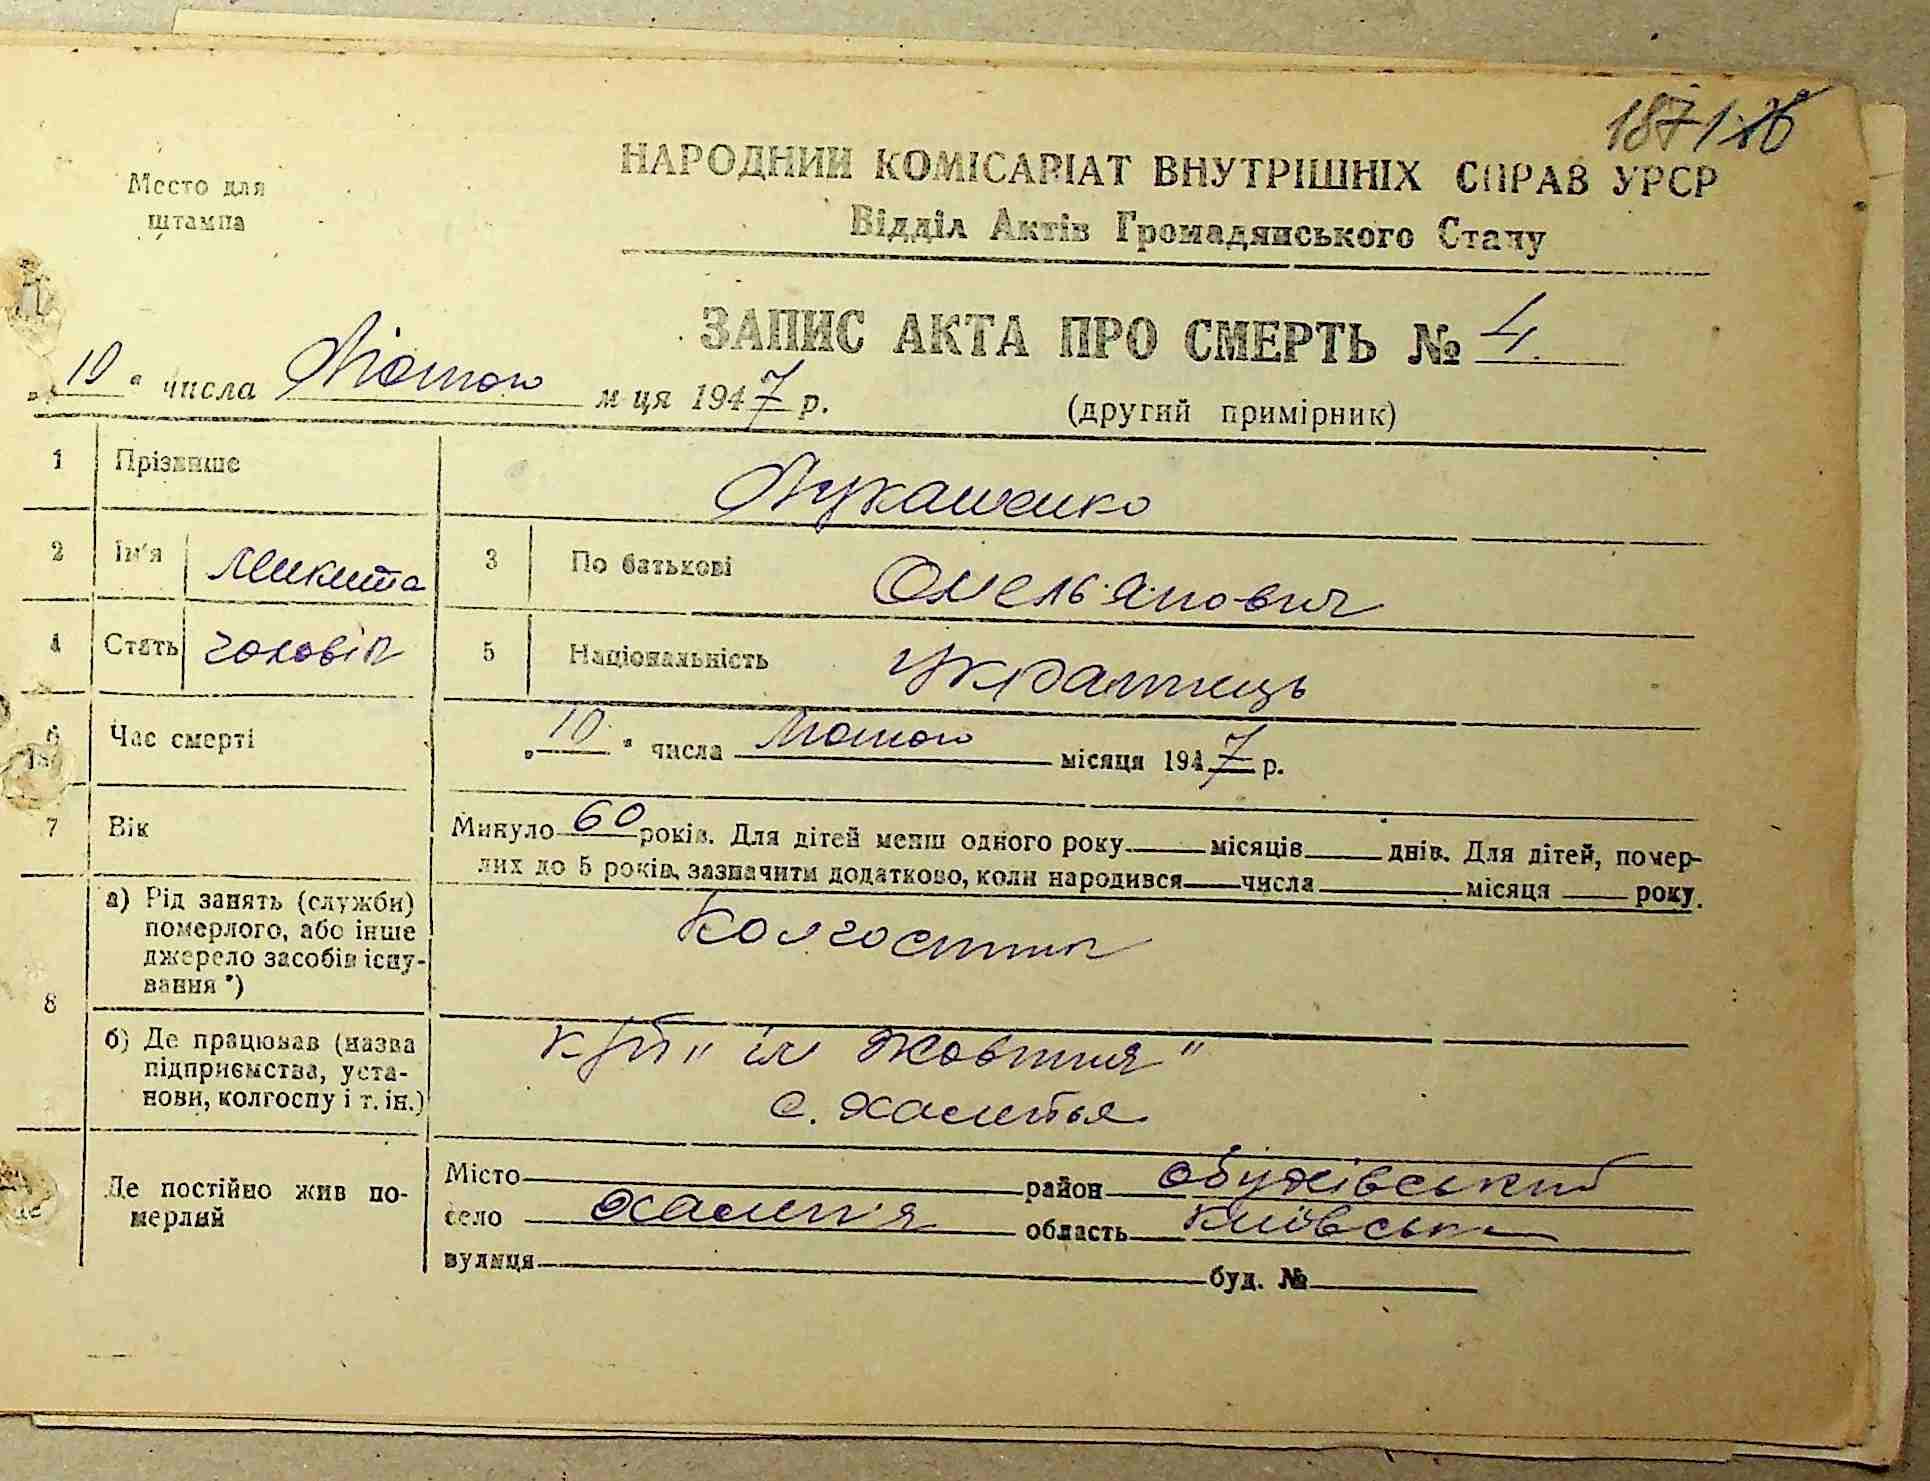 187
Место для
штампа
НАРОДНИЙ КОМІСАРІАТ ВНУТРІШНІХ СПРАВ УРСР
Відділ Актів Громадянського Стану
ЗАПИС АКТА ПРО СМЕРТЬ № 4
„10“ числа Лютого м-ця 1947 р.
(другий примірник)
1 Прізвище Лукашенко
2 Ім'я Микита 3 По батькові Омельянович
4 Стать чоловік 5 Національність Українець
6 Час смерті „10“ числа Лютого місяця 1947 р.
7 Вік Минуло 60 років. Для дітей менш одного року місяців днів. Для дітей, помер-
лих до 5 років, зазначити додатково, коли народився числа місяця року.
8 а) Рід занять (служби)
померлого, або інше
джерело засобів існу-
вання *)
Колгоспник
б) Де працював (назва
підприємства, уста-
нови, колгоспу і т. ін.)
к/г „ім Жовтня“
с. Халепья
Де постійно жив по-
мерлий
Місто район Обухівський
село Халеп'я область Київська
вулиця буд. №